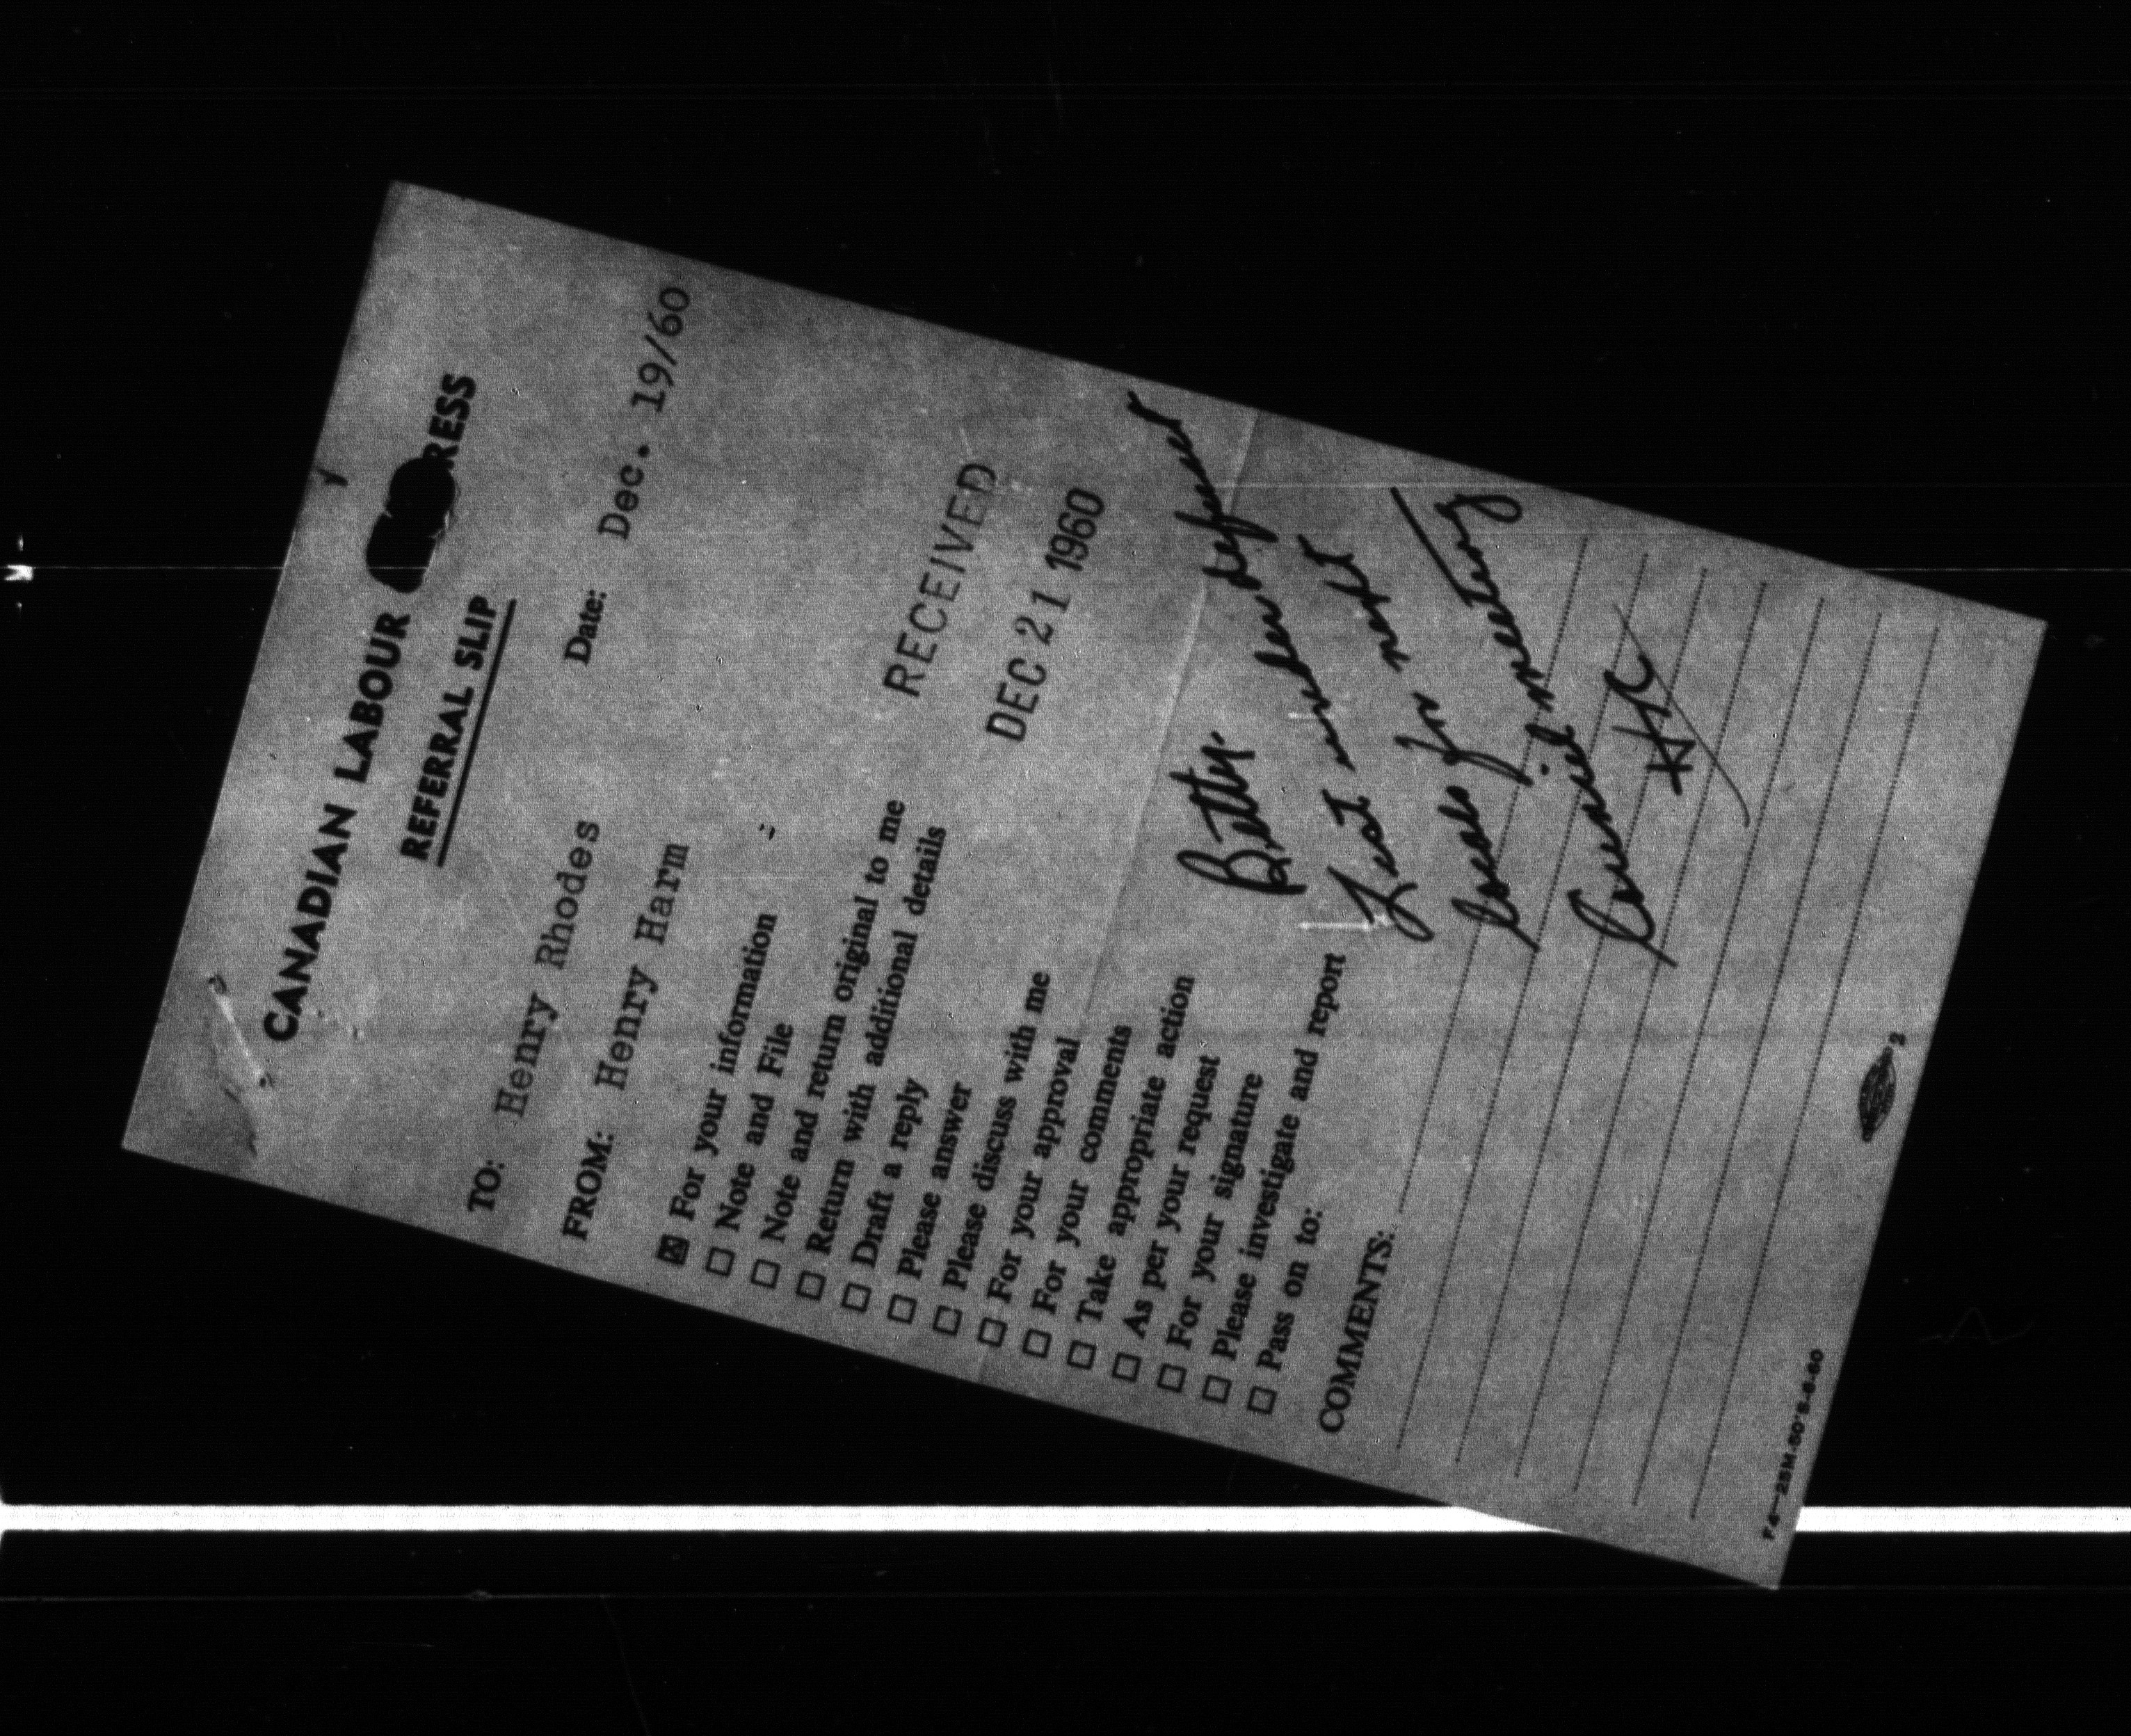 CANADIAN LABOUR RESS
REFERRAL SLIP
Date: Dec. 19/60
TO: Henry Rhodes
FROM: Henry Harm
☒ For your information
☐ Note and File
☐ Note and return original to me
☐ Return with additional details
☐ Draft a reply
☐ Please answer
☐ Please discuss with me
☐ For your approval
☐ For your comments
☐ Take appropriate action
☐ As per your request
☐ For your signature
☐ Please investigate and report
☐ Pass on to:
RECEIVED
DEC 21 1960
Betty.
List under
under next
for
meeting
COMMENTS:
2